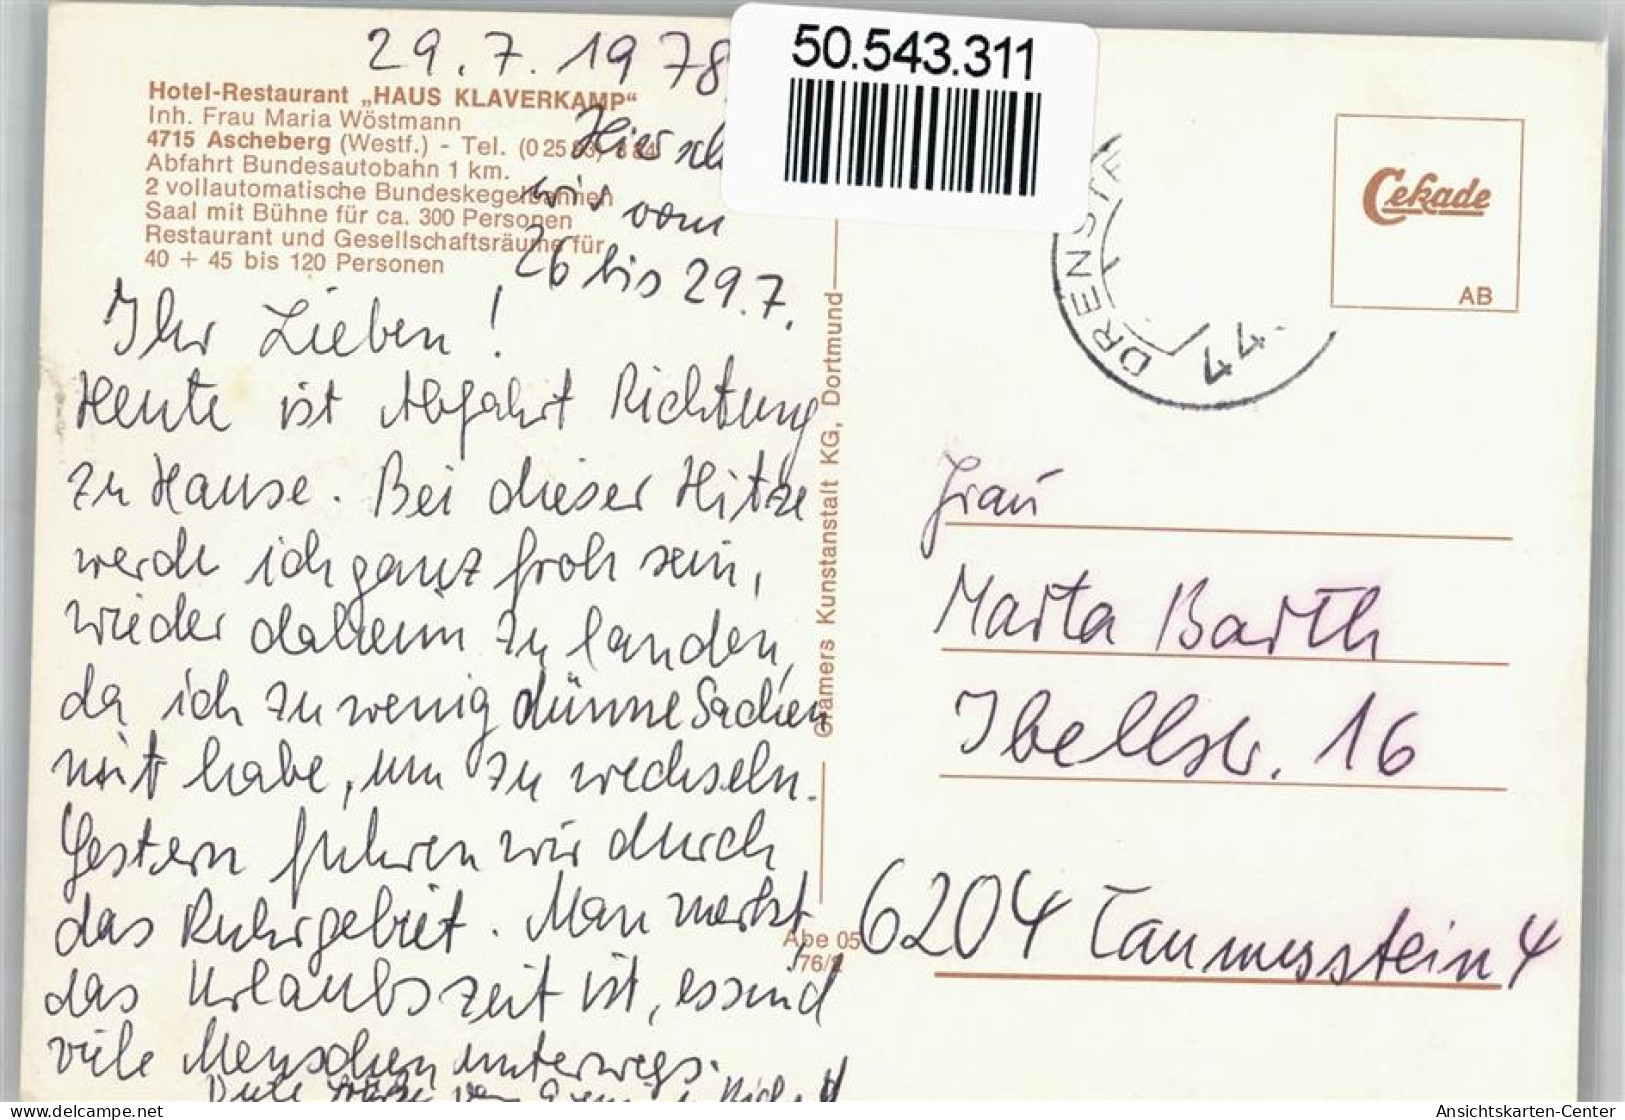 29.7.1978
50.543.311
Hotel-Restaurant „HAUS KLAVERKAMP“
Inh. Frau Maria Wöstmann
4715 Ascheberg (Westf.) - Tel. (0 25
Abfahrt Bundesautobahn 1 km.
2 vollautomatische Bundeskegelbahnen
Saal mit Bühne für ca. 300 Personen
Restaurant und Gesellschaftsräume für
40 + 45 bis 120 Personen
Hier
wir vom
26 bis 29.7.
Ihr Lieben!
Heute ist Abfahrt Richtung
zu Hause. Bei dieser Hitze
werde ich ganz froh sein,
wieder daheim zu landen,
da ich zu wenig dünne Sachen
mit habe, um zu wechseln.
Gestern fuhren wir durch
das Ruhrgebiet. Man merkt,
das Urlaubszeit ist, es sind
viele Menschen unterwegs.
Viele
Cramers Kunstanstalt KG, Dortmund
Abe 05
76/2
Cekade
AB
DRENST
Frau
Marta Barth
Ibellstr. 16
6204 Taunusstein 4
delcampe.net
Ansichtskarten-Center